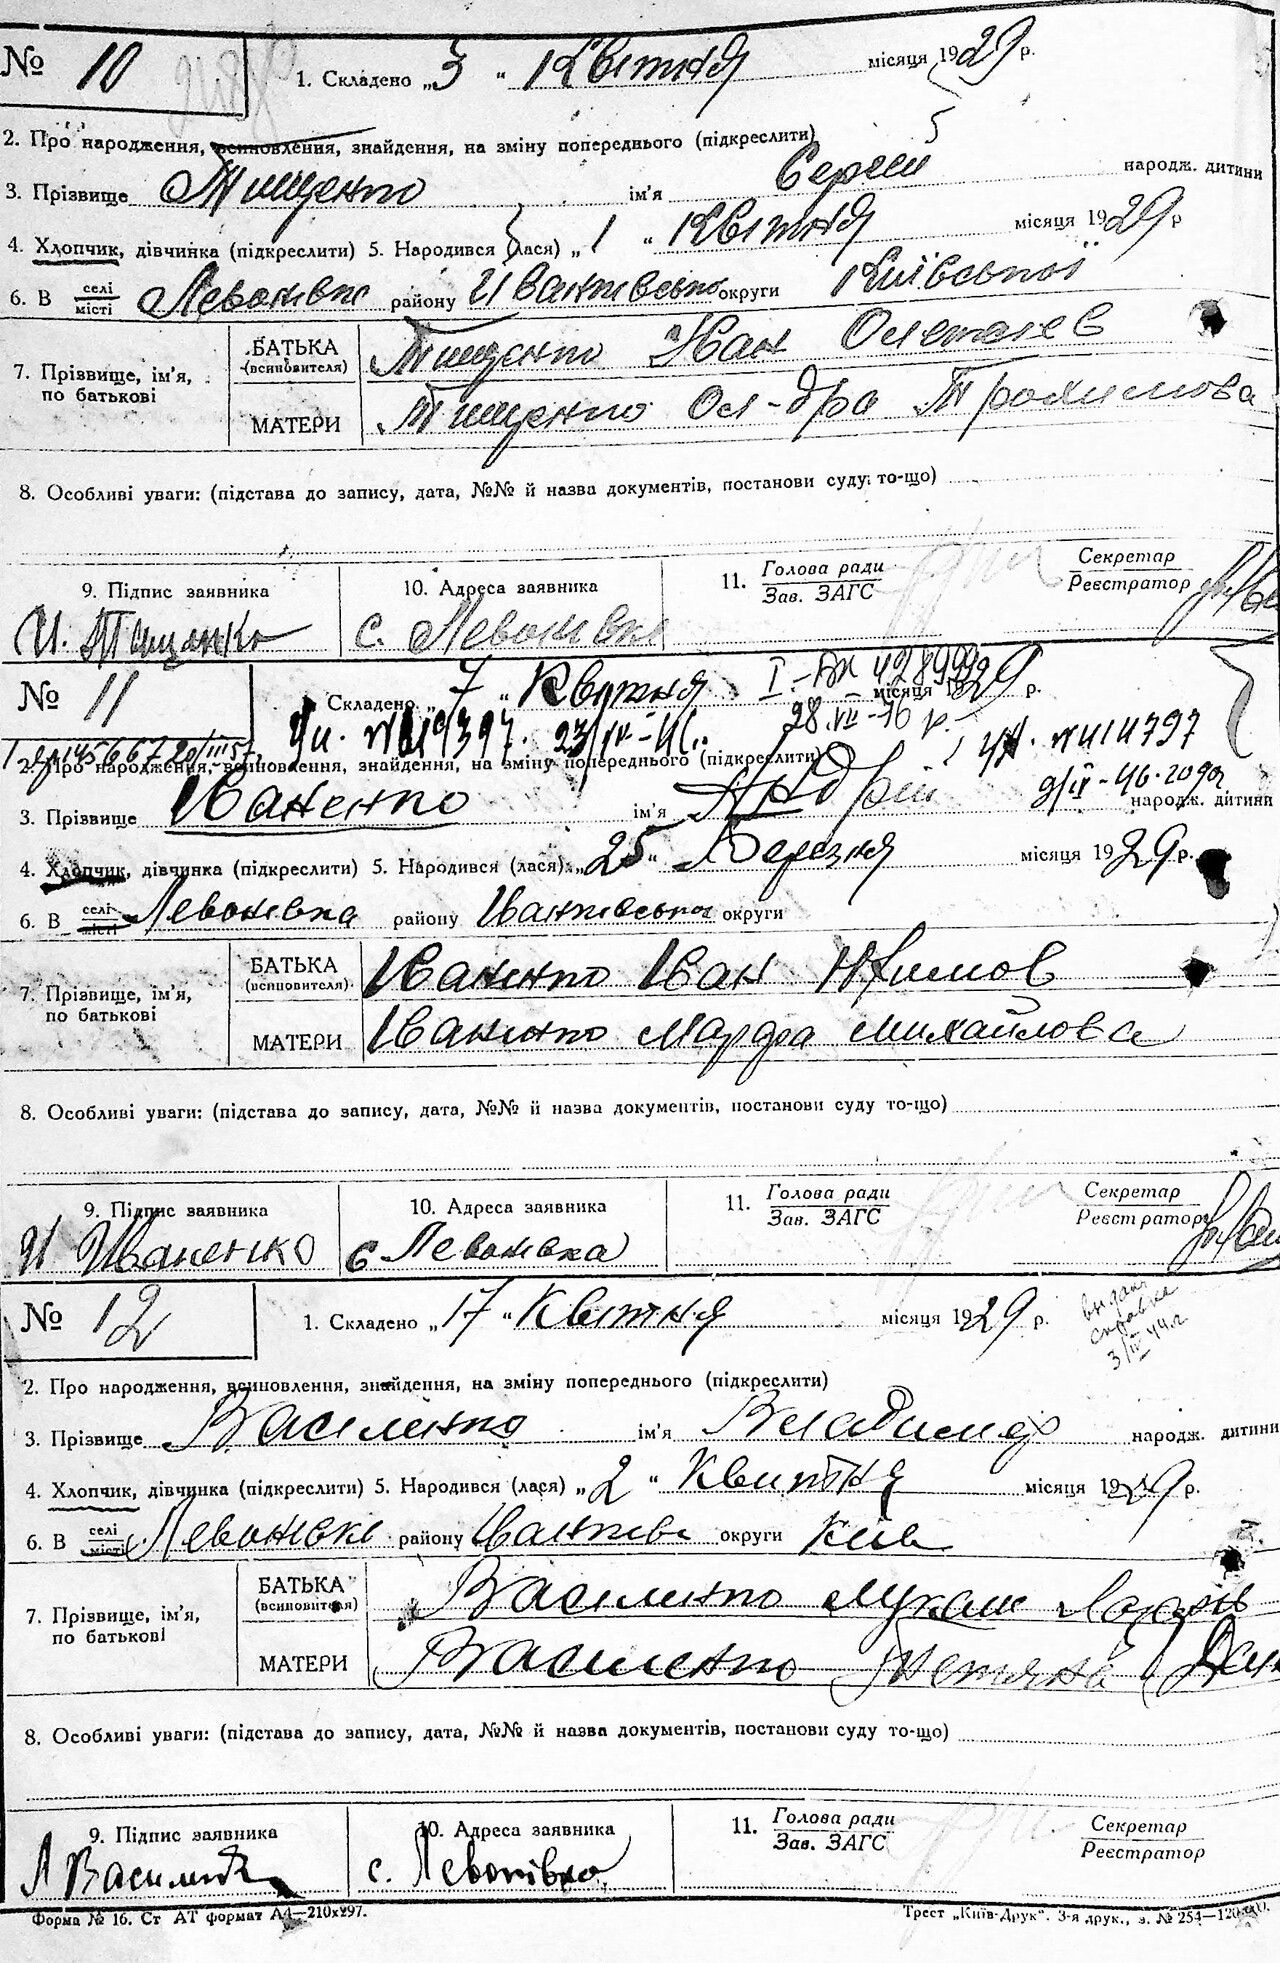 № 10
1. Складено „3“ Квітня місяця 1929 р.
2. Про народження, всиновлення, знайдення, на зміну попереднього (підкреслити)
3. Прізвище Тищенко ім'я Сергій народж. дитини
4. Хлопчик, дівчинка (підкреслити) 5. Народився (лася) „1“ Квітня місяця 1929 р
6. В селі/місті Левонівка району Иванківсько округи Київської
7. Прізвище, ім'я, по батькові
БАТЬКА (всиновителя) Тищенко Иван
МАТЕРИ Тищенко Ол-дра Трохимова
8. Особливі уваги: (підстава до запису, дата, №№ й назва документів, постанови суду то-що)
9. Підпис заявника 10. Адреса заявника 11. Голова ради Секретар
Зав. ЗАГС Реєстратор
И. Тищенко с. Левонівка
№ 11
Складено „7“ Квітня місяця 1929 р.
28.VII-76 р.
2. Про народження, всиновлення, знайдення, на зміну попереднього (підкреслити)
3. Прізвище Іваненко ім'я Андрій народж. дитини
4. Хлопчик, дівчинка (підкреслити) 5. Народився (лася) „25“ Березня місяця 1929 р.
6. В селі/місті Левонівка району Іванківсько округи
7. Прізвище, ім'я, по батькові
БАТЬКА (всиновителя) Іваненко Іван
МАТЕРИ Іваненко Марфа Михайлова
8. Особливі уваги: (підстава до запису, дата, №№ й назва документів, постанови суду то-що)
9. Підпис заявника 10. Адреса заявника 11. Голова ради Секретар
Зав. ЗАГС Реєстратор
И Иваненко с Левонівка
№ 12
1. Складено „17“ Квітня місяця 1929 р.
видана
справка
3/IV 44 г
2. Про народження, всиновлення, знайдення, на зміну попереднього (підкреслити)
3. Прізвище Василенко ім'я Владимир народж. дитини
4. Хлопчик, дівчинка (підкреслити) 5. Народився (лася) „2“ Квитня місяця 1929 р.
6. В селі/місті Левонівка району Іванків округи Київ
7. Прізвище, ім'я, по батькові
БАТЬКА (всиновителя) Василенко Лукаш
МАТЕРИ Василенко Тетяна
8. Особливі уваги: (підстава до запису, дата, №№ й назва документів, постанови суду то-що)
9. Підпис заявника 10. Адреса заявника 11. Голова ради Секретар
Зав. ЗАГС Реєстратор
с. Левонівка
Форма № 16. Ст АТ формат А4—210х297. Трест „Київ-Друк“. 3-я друк., з. № 254—